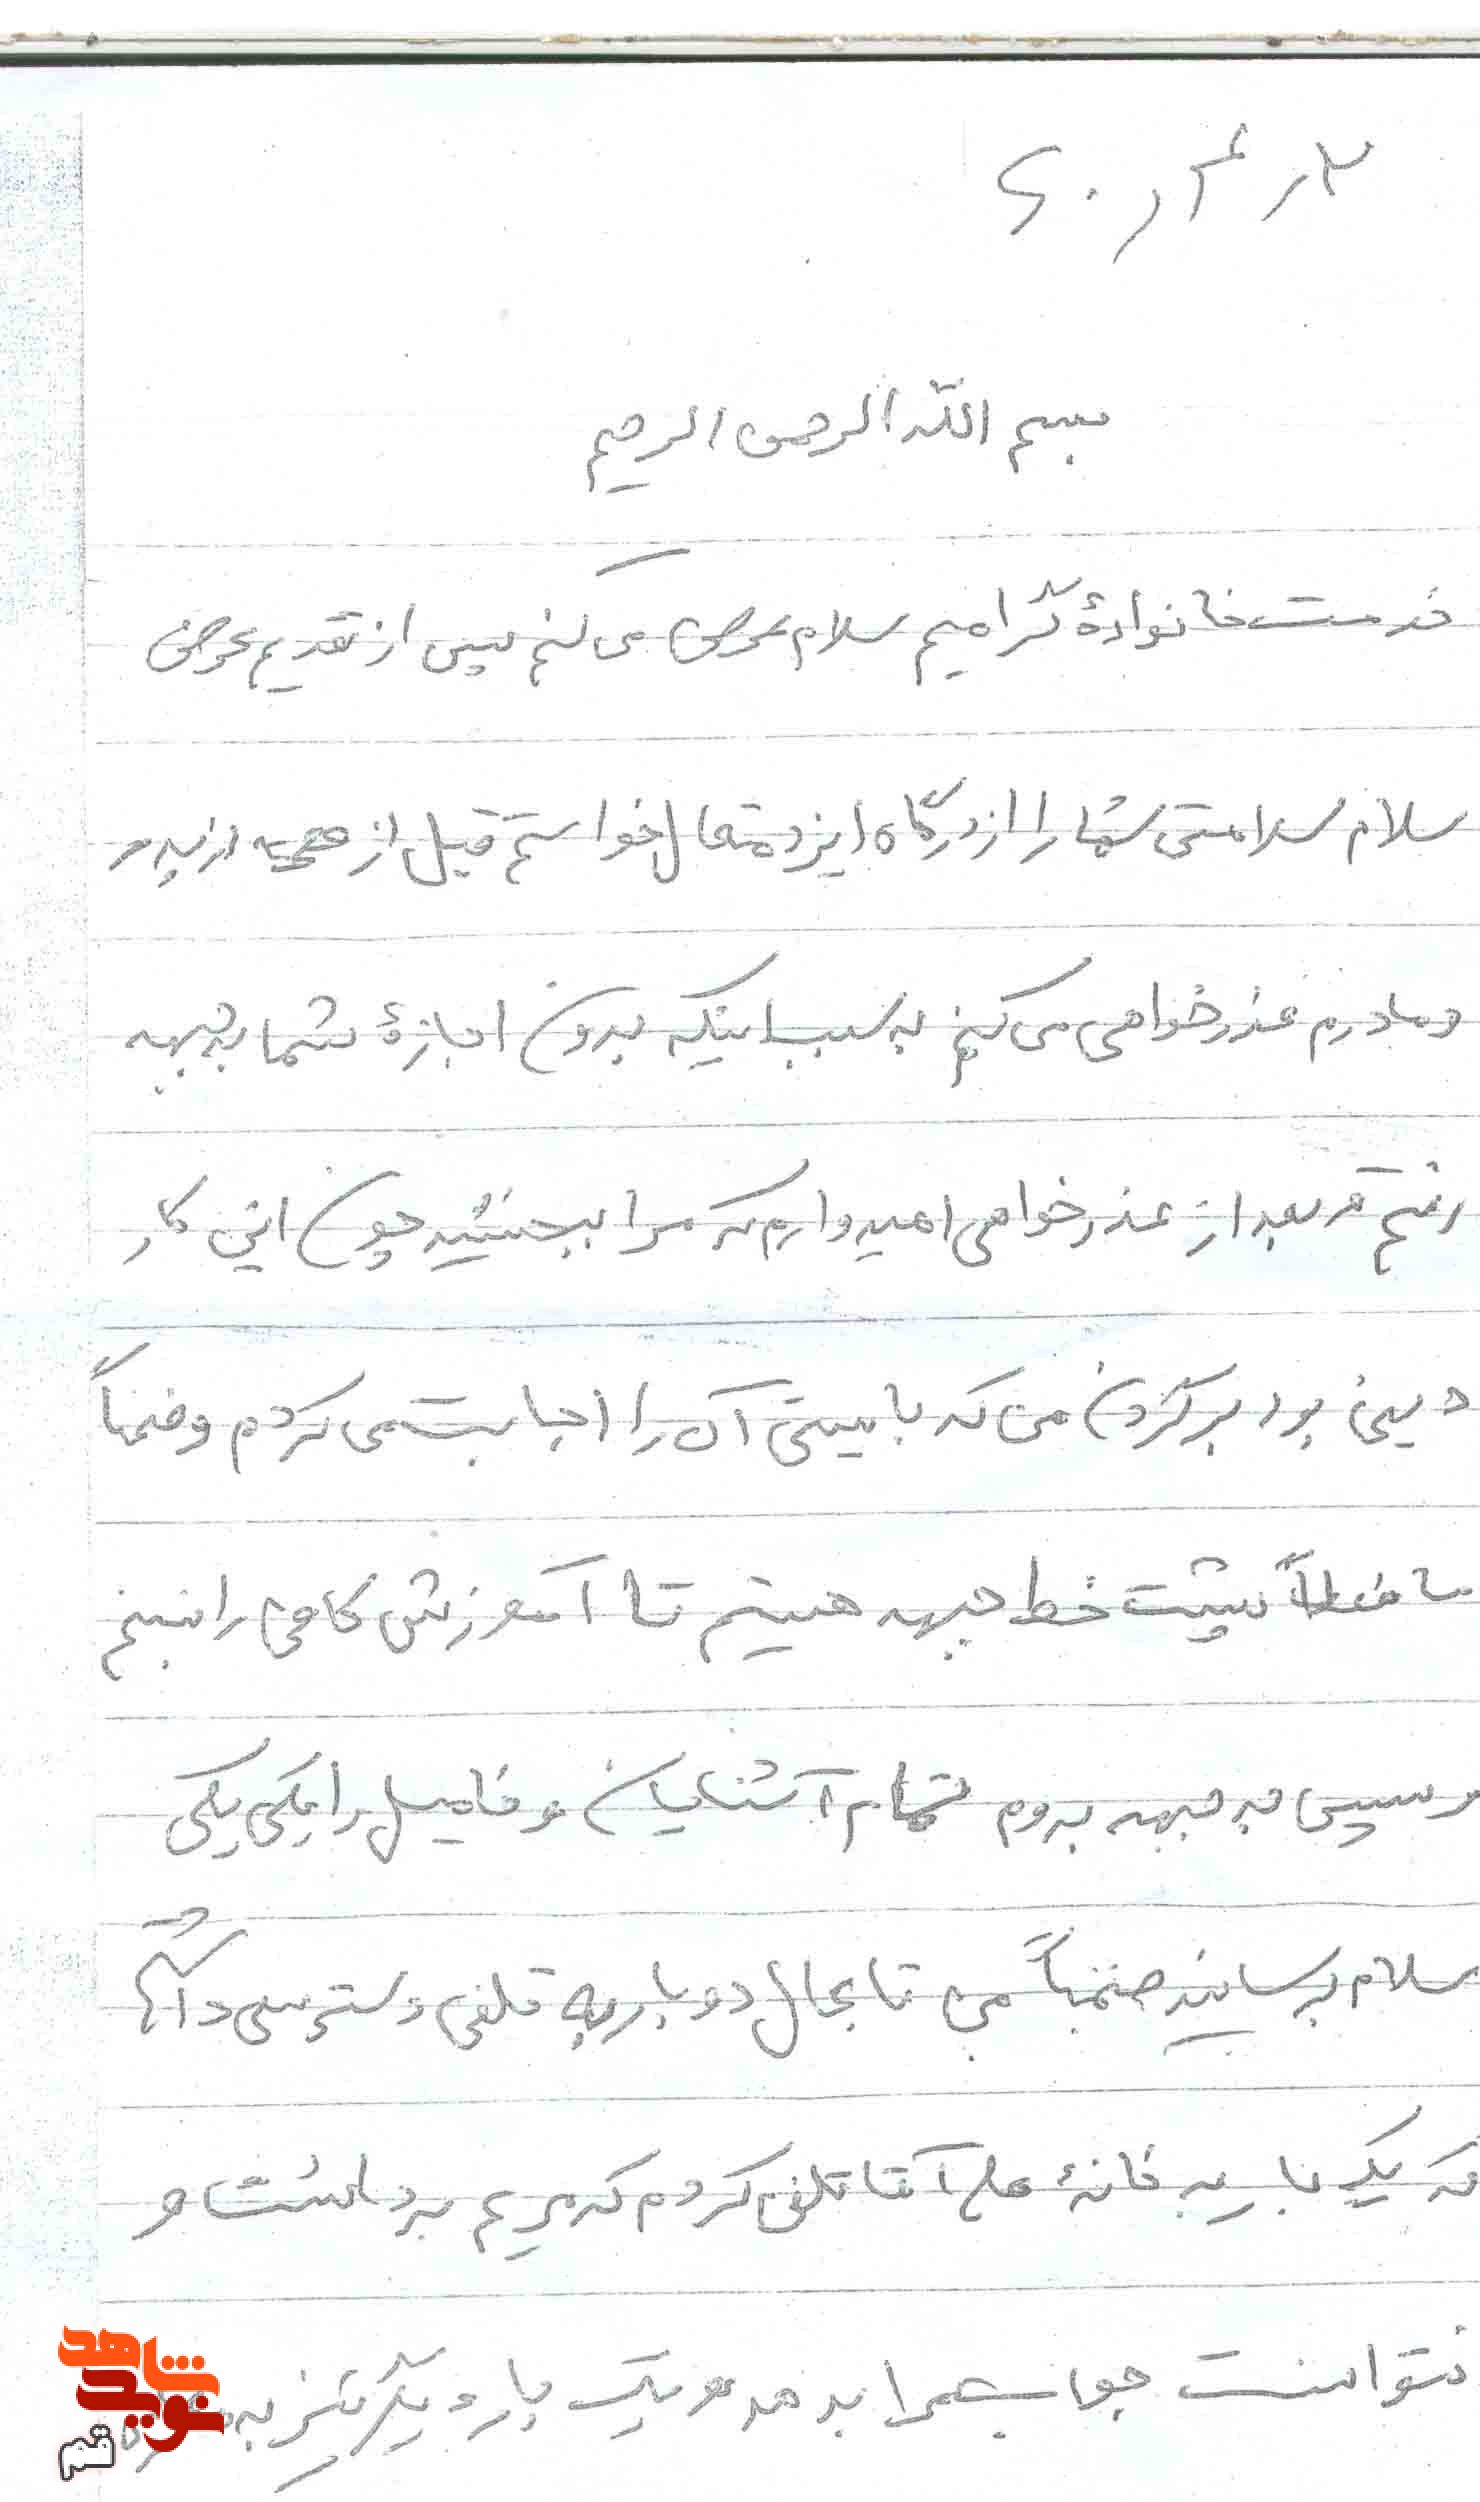 بسم الله الرحمن الرحیم
خدمت خانوادهٔ گرامیم سلام عرض می کنم پس از تقدیم عرض
سلام سلامتی شما را از درگاه ایزد متعال خواستم قبل از همه از پدر
و مادرم عذرخواهی می کنم به سبب اینکه بدون اجازهٔ شما به جبهه
رفتم و بعد از عذرخواهی امیدوارم که مرا ببخشید چون این کار
دینی بود بر گردن من که بایستی آن را اجابت می کردم و ضمناً
ما فعلاً پشت خط جبهه هستیم تا آموزش کافی را ببینم
و سپس به جبهه بروم تمام آشنایان و فامیل را یکی یکی
سلام برسانید ضمناً من تا بحال دو بار به تلفن دسترسی داشتم
که یک بار به خانهٔ علی آقا تلفن کردم که مریم برداشت و
نتوانست جوابم را بدهد و یک بار دیگر نیز به
شاهد
نوید
قم